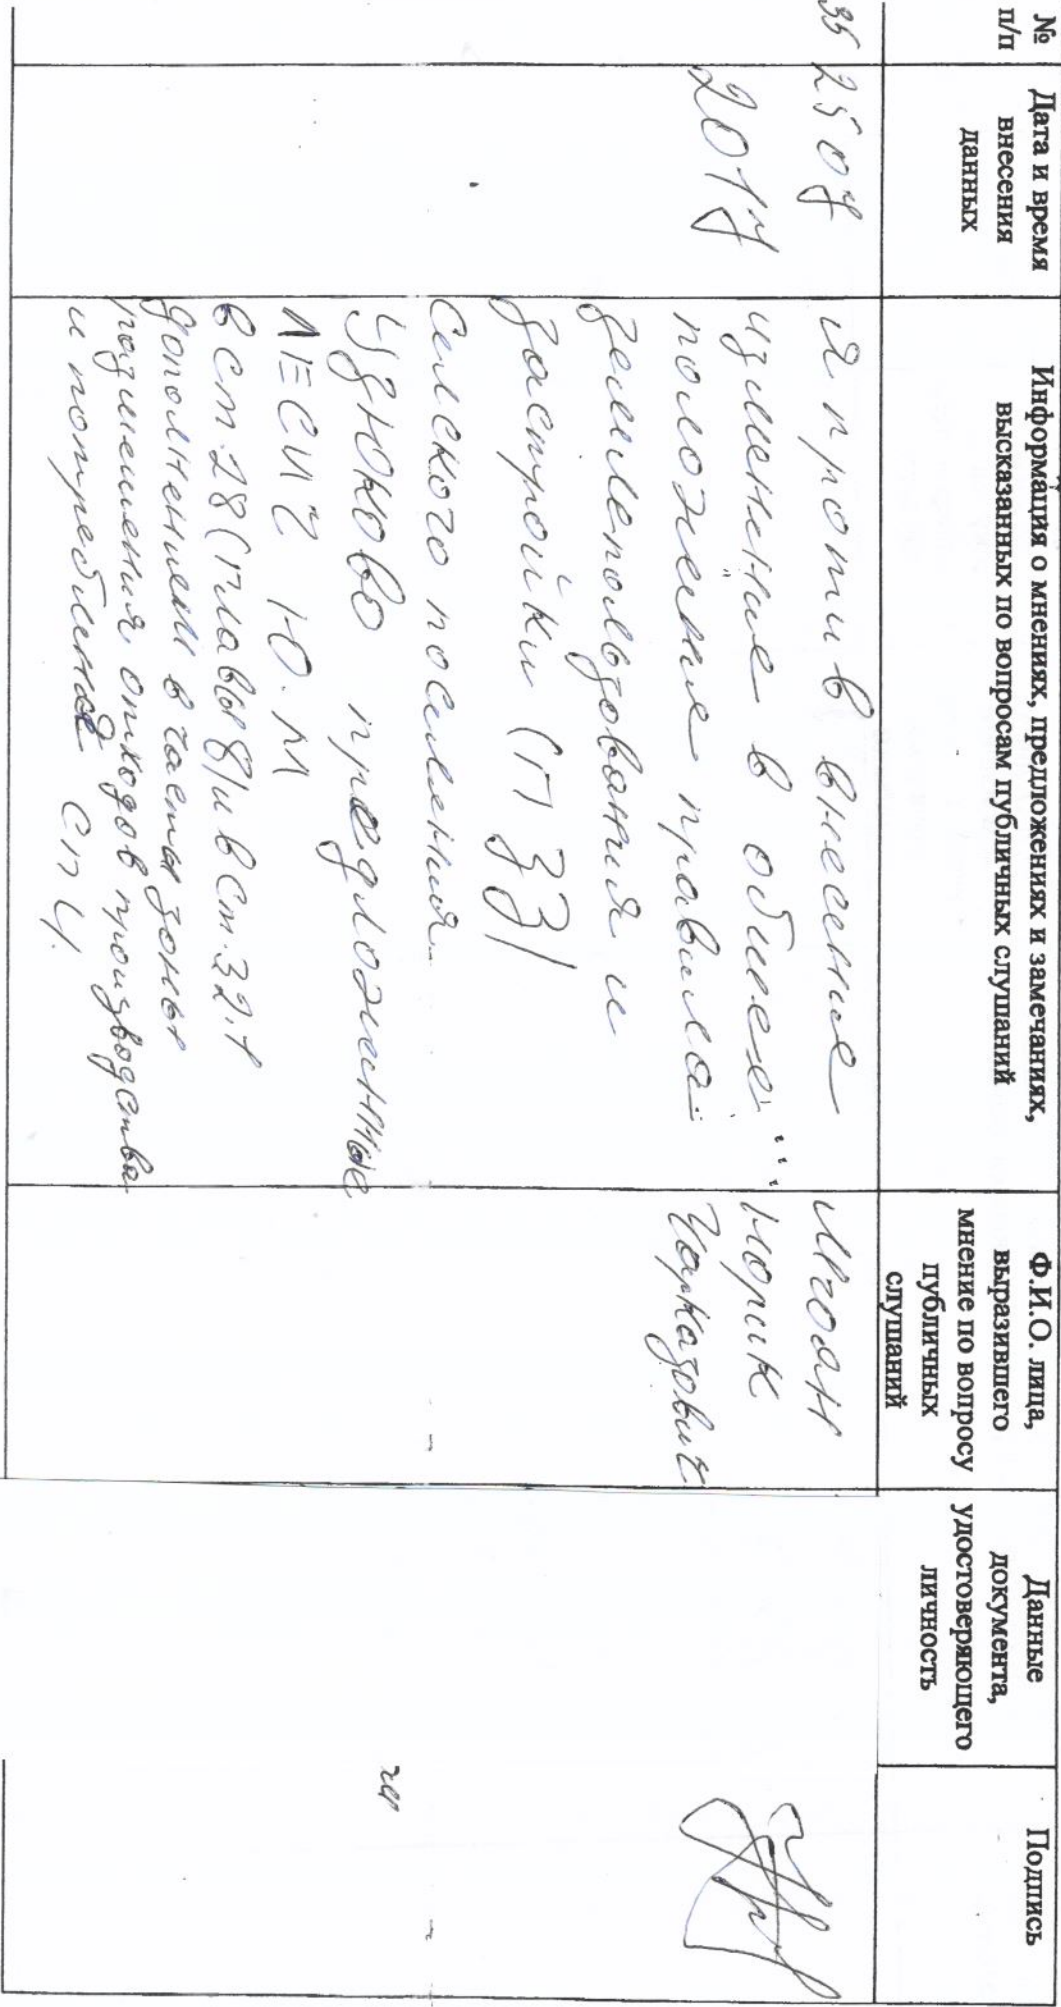 №
п/п
Дата и время
внесения
данных
Информация о мнениях, предложениях и замечаниях,
высказанных по вопросам публичных слушаний
Ф.И.О. лица,
выразившего
мнение по вопросу
публичных
слушаний
Данные
документа,
удостоверяющего
личность
Подпись
35
25 07
2017
я против внесение
изменение в общее
положение правила
землепользования и
застройки (ПЗЗ)
сельского поселения
Удюново предложенные
ЛЕСИЧ Ю.М
в ст.28 (главы 8) и в ст.32.1
дополнением в части зоны
размещения отходов производства
и потребления СП4.
Мгоян
Норик